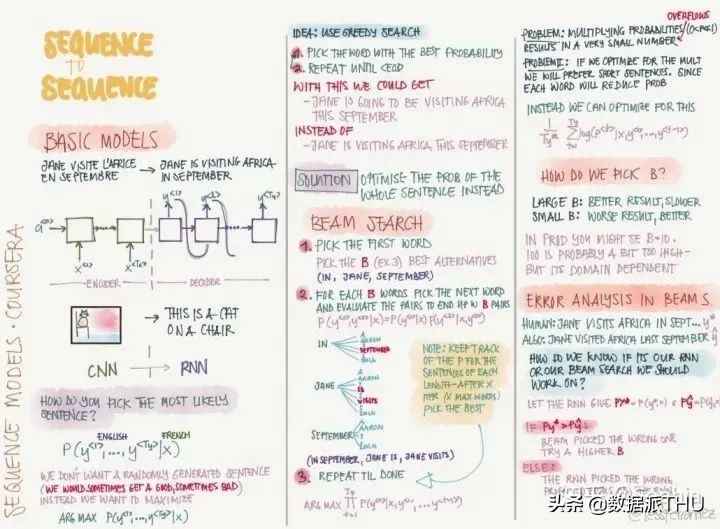 SEQUENCE
TO
SEQUENCE
BASIC MODELS
JANE VISITE L'AFRICE
EN SEPTEMBRE
JANE IS VISITING AFRICA
IN SEPTEMBER
a<0>
x<1>
x<Tx>
y<1>
y<2>
y<Ty>
ENCODER
DECODER
THIS IS A CAT
ON A CHAIR
CNN
RNN
HOW DO YOU PICK THE MOST LIKELY
SENTENCE?
ENGLISH
FRENCH
P(y<1>,...,y<Ty>|x)
WE DON'T WANT A RANDOMLY GENERATED SENTENCE
(WE WOULD SOMETIMES GET A GOOD, SOMETIMES BAD)
INSTEAD WE WANT TO MAXIMIZE
ARG MAX P(y<1>,...,y<Ty>|x)
SEQUENCE MODELS · COURSERA
IDEA: USE GREEDY SEARCH
1. PICK THE WORD WITH THE BEST PROBABILITY
2. REPEAT UNTIL <EOD>
WITH THIS WE COULD GET
- JANE IS GOING TO BE VISITING AFRICA
THIS SEPTEMBER
INSTEAD OF
- JANE IS VISITING AFRICA THIS SEPTEMBER
SOLUTION
OPTIMISE THE PROB OF THE
WHOLE SENTENCE INSTEAD
BEAM SEARCH
1. PICK THE FIRST WORD
PICK THE B (EX. 3) BEST ALTERNATIVES
(IN, JANE, SEPTEMBER)
2. FOR EACH B WORDS PICK THE NEXT WORD
AND EVALUATE THE PAIRS TO END UP W B PAIRS
P(y<1>,y<2>|x)=P(y<1>|x)P(y<2>|x,y<1>)
IN
A
AARON
SEPTEMBER
ZULU
JANE
A
AARON
IS
VISITS
ZULU
SEPTEMBER
A
AARON
ZULU
NOTE: KEEP TRACK
OF THE P FOR THE
SENTENCES OF EACH
LENGTH - AFTER X
ITER (X MAX WORDS)
PICK THE BEST
(IN SEPTEMBER, JANE IS, JANE VISITS)
3. REPEAT TIL DONE
ARG MAX
OVERFLOWS
PROBLEM: MULTIPLYING PROBABILITIES
RESULTS IN A VERY SMALL NUMBER
PROBLEM II: IF WE OPTIMIZE FOR THE MULT
WE WILL PREFER SHORT SENTENCES. SINCE
EACH WORD WILL REDUCE PROB
INSTEAD WE CAN OPTIMIZE FOR THIS
HOW DO WE PICK B?
LARGE B: BETTER RESULT, SLOWER
SMALL B: WORSE RESULT, BETTER
IN PROD YOU MIGHT SE B=10.
100 IS PROBABLY A BIT TOO HIGH -
BUT ITS DOMAIN DEPENDENT
ERROR ANALYSIS IN BEAM S.
HUMAN: JANE VISITS AFRICA IN SEPT... y*
ALGO: JANE VISITED AFRICA LAST SEPTEMBER ŷ
HOW DO WE KNOW IF ITS OUR RNN
OR OUR BEAM SEARCH WE SHOULD
WORK ON?
LET THE RNN GIVE
IF Py*>Pŷ:
BEAM PICKED THE WRONG ONE
TRY A HIGHER B
ELSE:
THE RNN PICKED THE WRONG
头条 @数据派THU